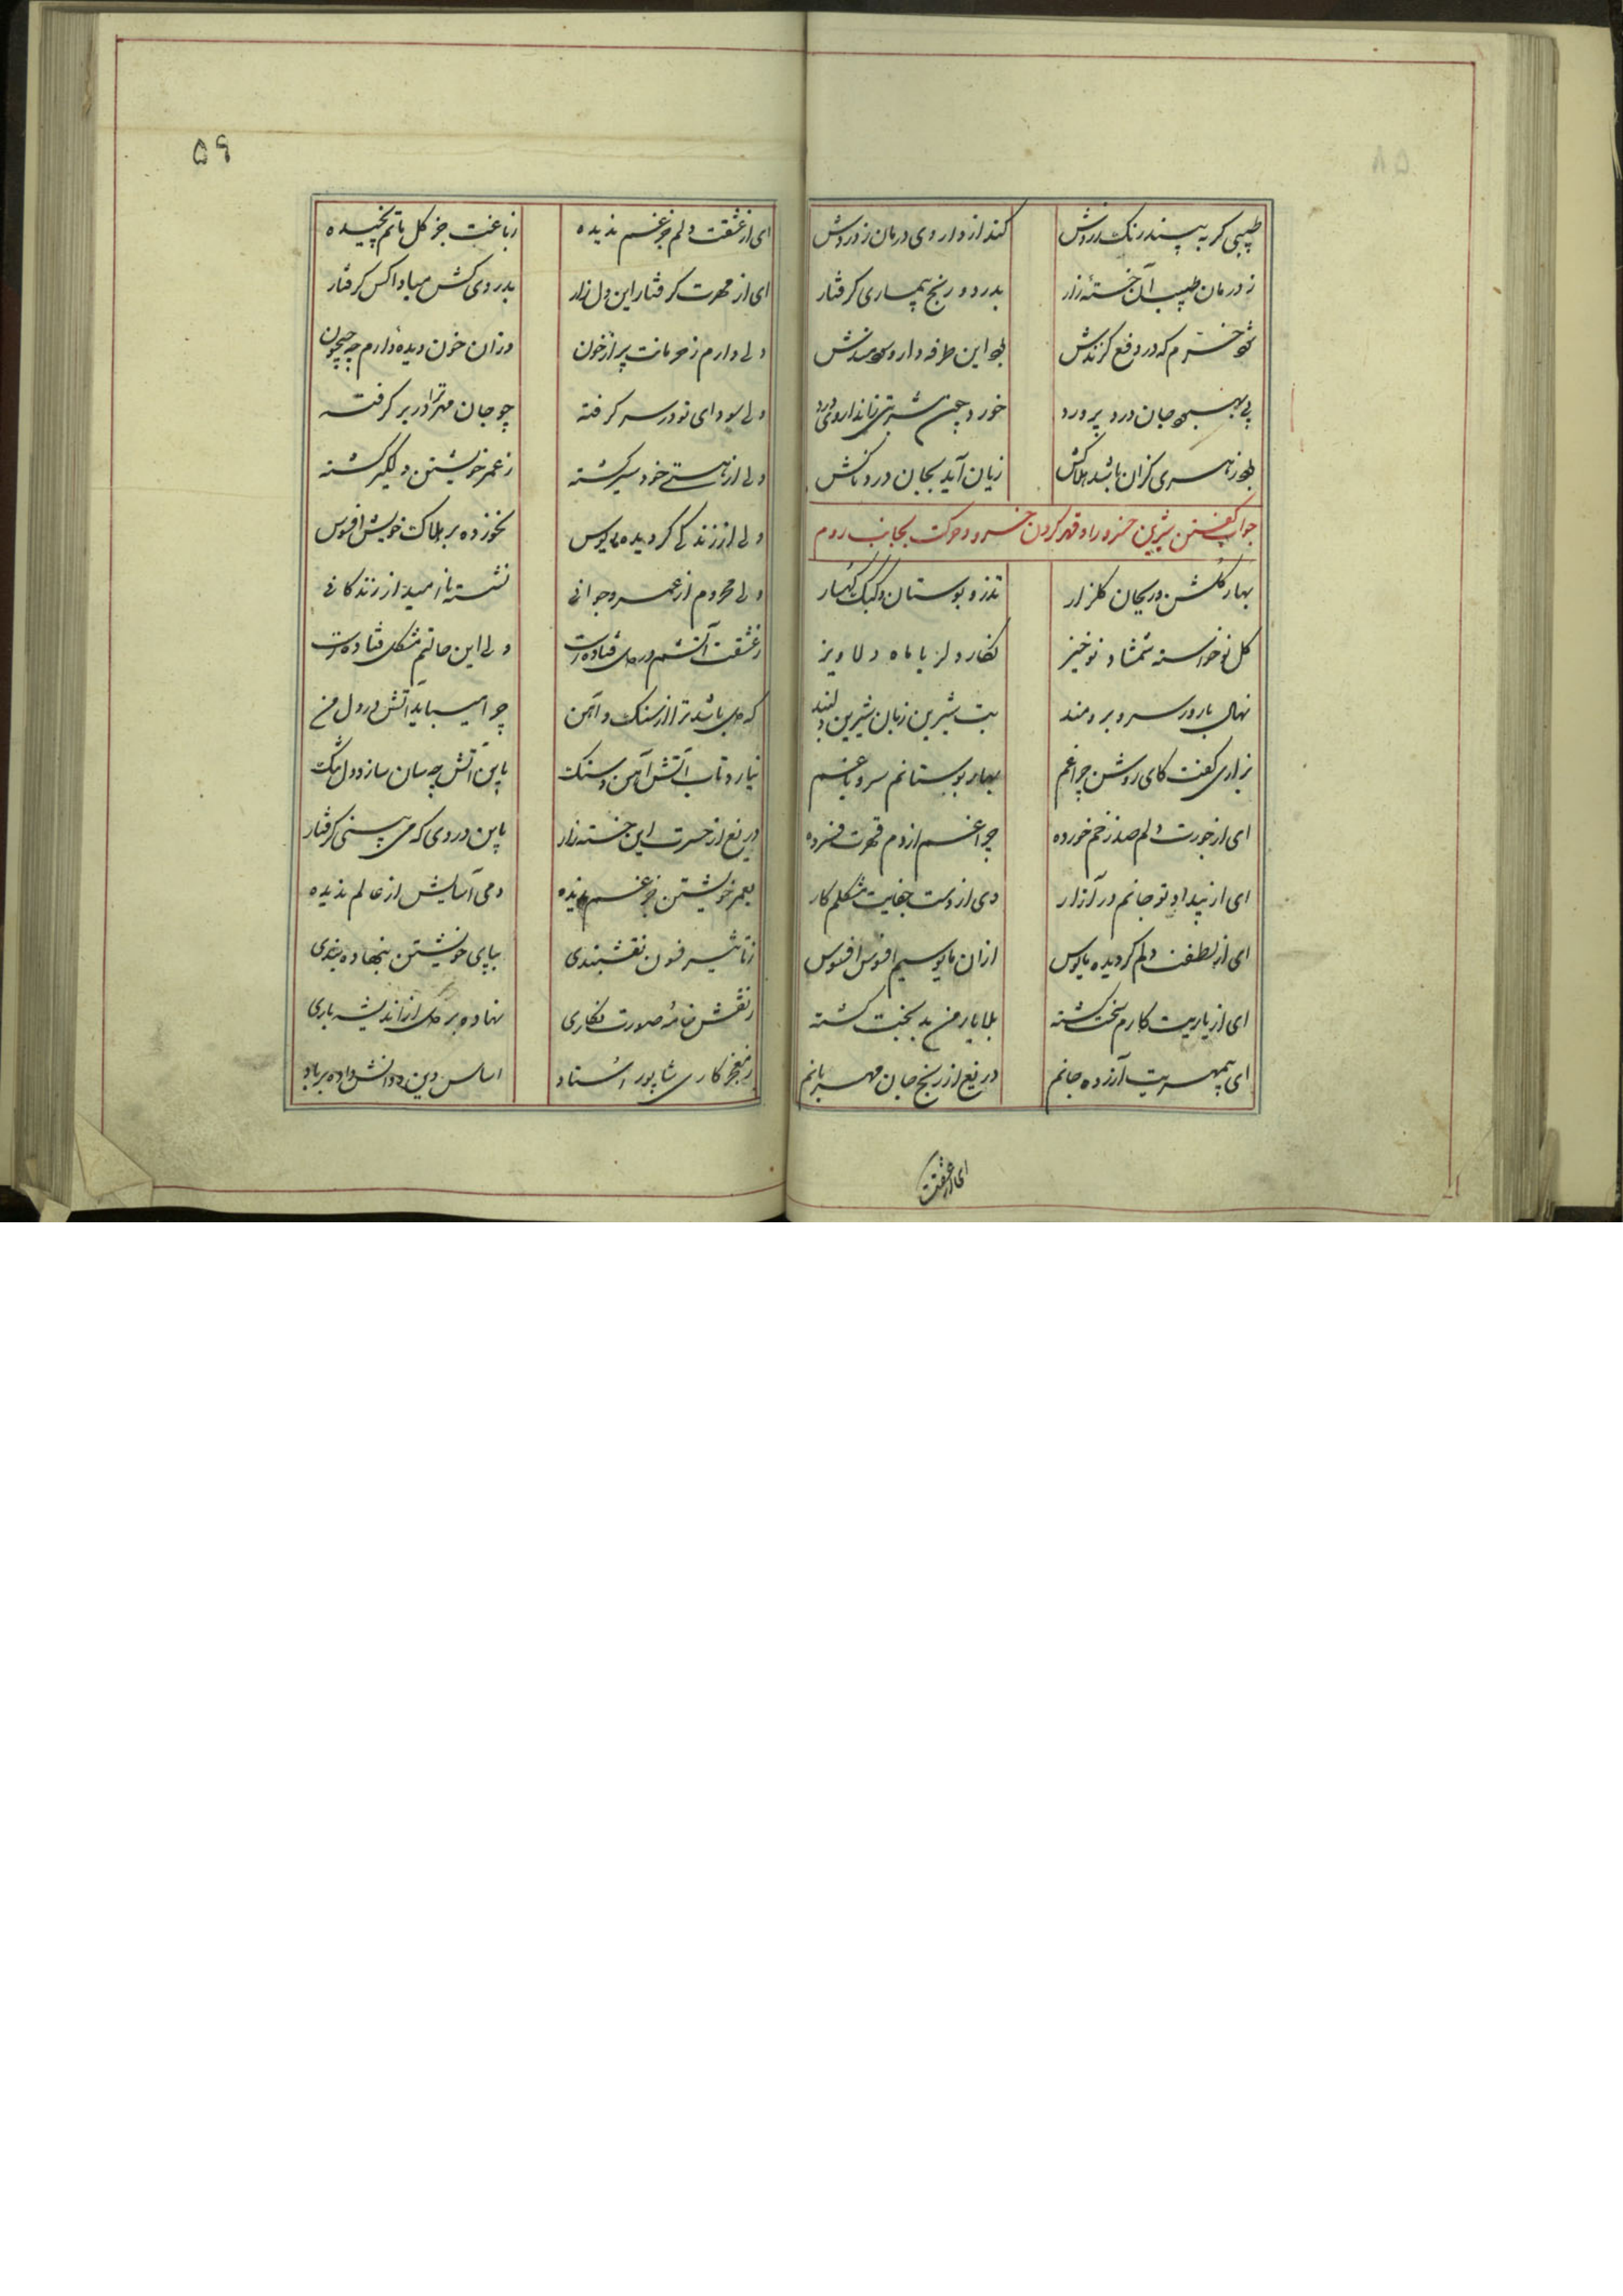 ۵۹
طبیبی کر به بیند رنک زردش کند از داروی درمان ز دردش
ز درمان طبیب آن خسته زار بدرد و رنج بیماری کرفتار
خرم که در دفع کزندش این طرفه دارو
جان درد پرورد خورد چون شربتی
کزان باشد هلاکش زیان آید بجان دردناکش
جواب کفتن شیرین خسرو را و قهر کردن خسرو و حرکت بجانب روم
بهار کلشن و ریحان کلزار تذرو بوستان و کبک کهسار
کل نوخواسته شمشاد نوخیز نکار دلربا ماه دلاویز
نهال بارور سرو برومند بت شیرین زبان شیرین دلبند
بزاری کفت کای روشن چراغم بهار بوستانم سرو باغم
ای از جورت دلم صد زخم خورده چراغم از دم قهرت فسرده
ای از بیداد تو جانم در آزار دی از دست جفایت مشکلم کار
ای از لطفت دلم کردیده مایوس ازان مایوسیم افسوس افسوس
ای از یاریت کارم سخت کشته بلا یار من بدبخت کشته
ای بیمهریت آزرده جانم دریغ از رنج جان مهربانم
ای از عشقت
ای از عشقت دلم جز غم ندیده ز باغت جز کل ماتم نچیده
ای از مهرت کرفتار این دل زار بدردی کش مبادا کس کرفتار
دلی دارم ز حرمانت پر از خون وزان خون دیده دارم چو جیحون
دلی سودای تو در سر کرفته چو جان مهر ترا در بر کرفته
دلی از هستی خود سیر کشته ز عمر خویشتن دلکیر کشته
دلی از زندکی کردیده مایوس نخورده بر هلاکت خویش افسوس
دلی محروم از عمر و جوانی نشسته ناامید از زندکانی
ز عشقت آتشم در دل فتاده است ولی این حالتم مشکل فتاده است
که دل باشد ترا از سنک و آهن چرا میباید آتش در دل من
نیارد تاب آتش آهن و سنک باین آتش چه سان سازد دل تنک
دریغ از حسرت این خسته زار باین دردی که می بینی کرفتار
بعمر خویشتن جز غم ندیده دمی آسایش از عالم ندیده
ز تاثیر فسون نقشبندی بپای خویشتن بنهاده بندی
ز نقش خامه صورت نکاری نهاده بر دل از اندیشه باری
ز معجز کاری شاپور استاد اساس دین و دانش داده بر باد